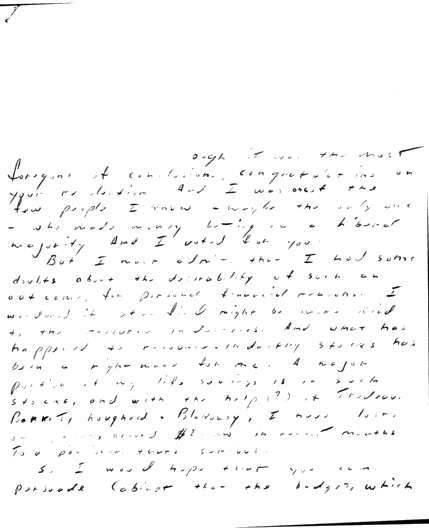 ough it was the most
foregone of conclusions, congratulations on
your re-election. And I was one of the
few people I know - maybe the only one
- who made money betting on a Liberal
majority. And I voted for you.
But I must admit that I had some
doubts about the desirability of such an
outcome, for personal financial reasons. I
wondered if might be more kind
to the resource industries. And what has
happened to resource-industry stocks has
been a nightmare for me. A major
portion of my life savings is in such
stocks, and with the help (?) of Trudeau,
Barrett, Lougheed + Blakeney, I have
in recent months
To a that's serious.
So I would hope that you can
persuade Cabinet that the budget, which